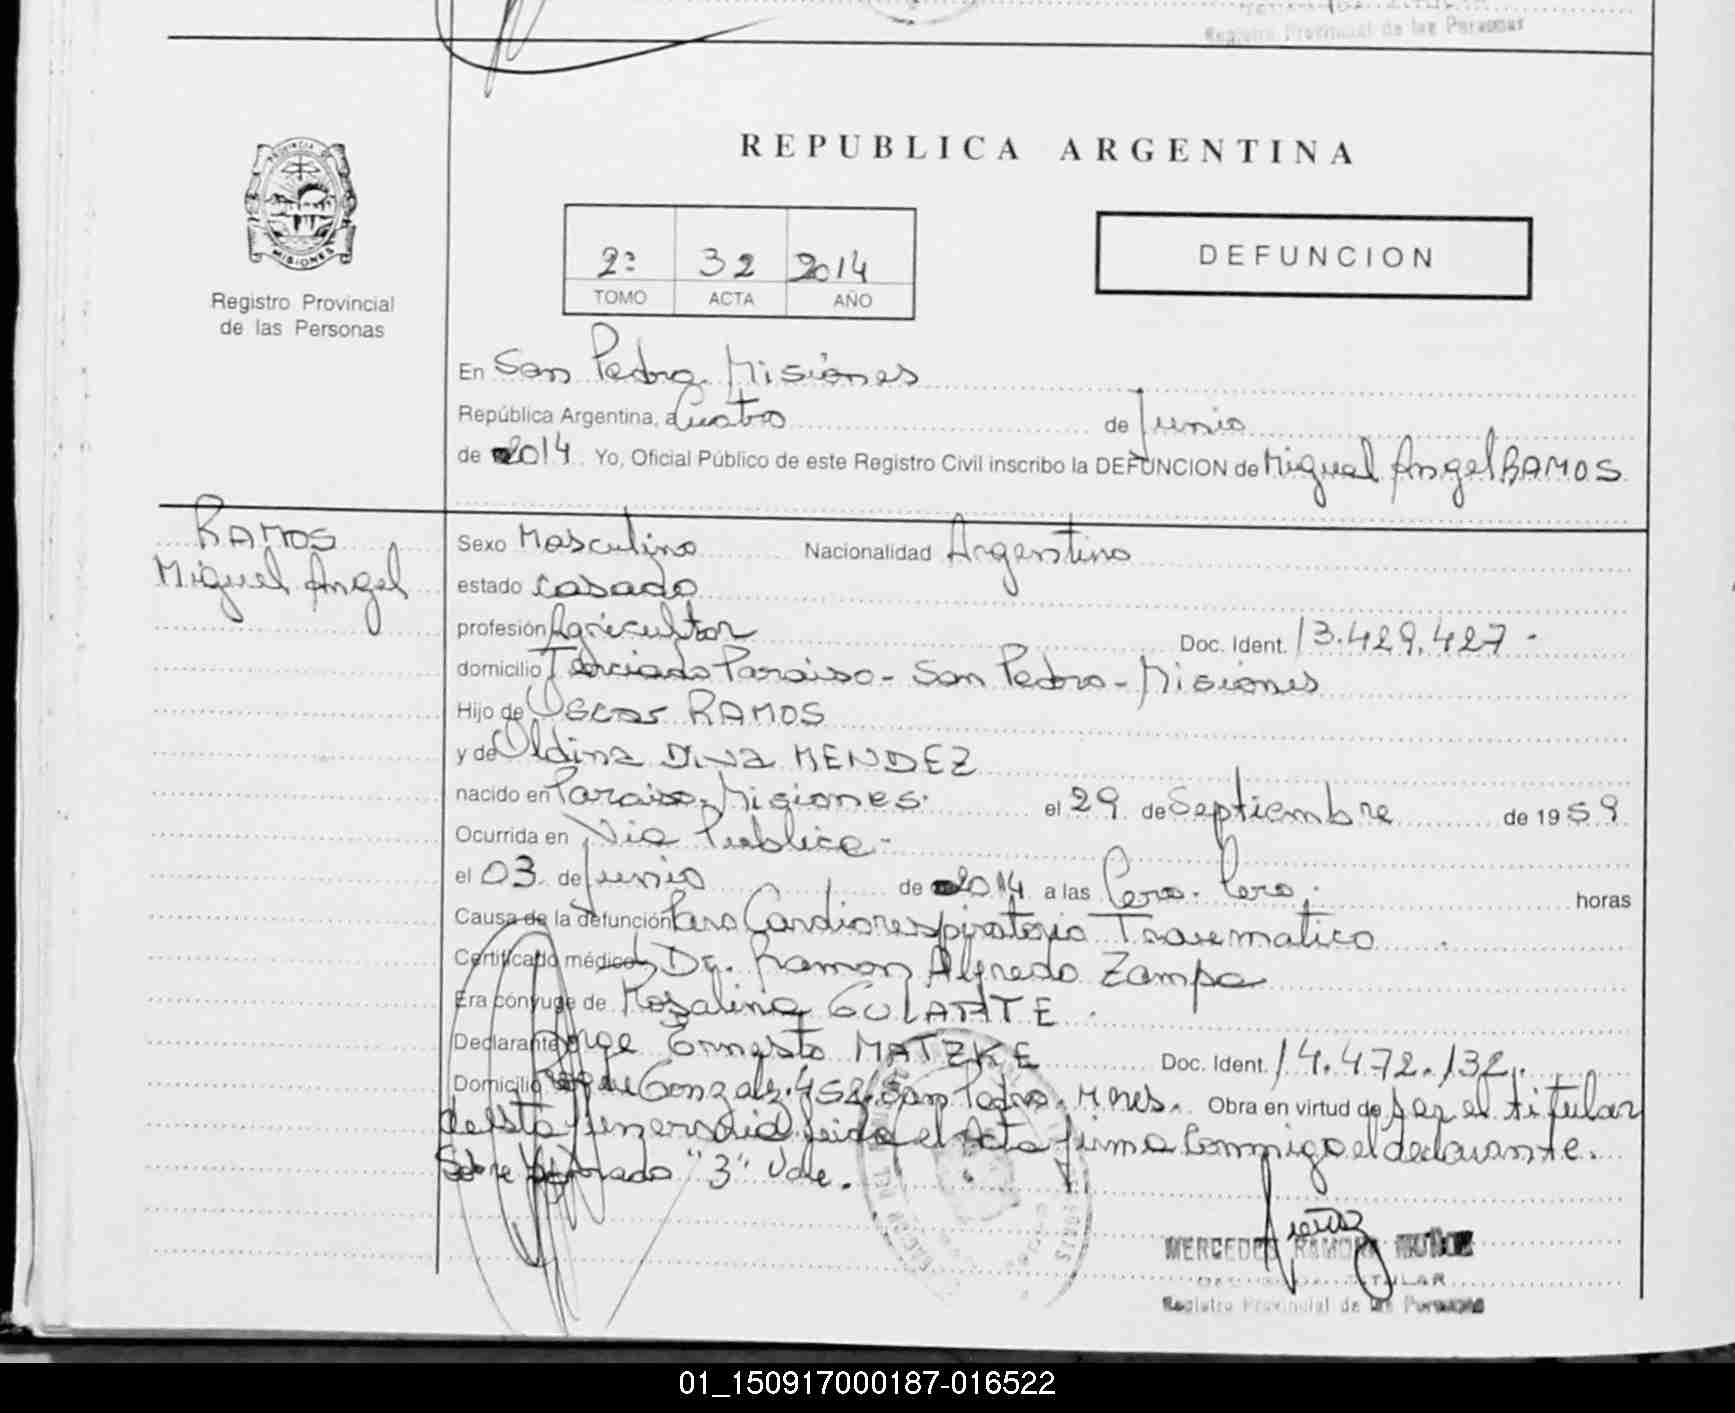 Registro Provincial de las Personas
REPUBLICA ARGENTINA
PROVINCIA DE
MISIONES
Registro Provincial
de las Personas
2º 32 2014
TOMO ACTA AÑO
DEFUNCION
En San Pedro. Misiones
República Argentina, a Cuatro de Junio
de 2014 Yo, Oficial Público de este Registro Civil inscribo la DEFUNCION de Miguel Angel RAMOS
RAMOS
Miguel Angel
Sexo Masculino Nacionalidad Argentino
estado casado
profesión Agricultor Doc. Ident. 13.429.427.
domicilio Terciado Paraiso - San Pedro - Misiones
Hijo de Oscar RAMOS
y de Oldina Diva MENDEZ
nacido en Paraiso, Misiones. el 29 de Septiembre de 1959
Ocurrida en Via Publica -
el 03 de Junio de 2014 a las Cero. Cero. horas
Causa de la defunción Paro Cardiorespiratorio Traumatico
Certificado médico Dr. Ramon Alfredo Zampa
Era cónyuge de Rosalina GULARTE.
Declarante Jorge Ernesto MATZKE Doc. Ident. 14.472.132.
Domicilio Gonzalez. 452. San Pedro. Mnes. Obra en virtud de ser el titular
de esta funeraria leida el Acta firma Conmigo el declarante.
Sobre borrado "3" Vale.
MERCEDES RAMONA MUÑOZ
TITULAR
Registro Provincial de las Personas
01_150917000187-016522